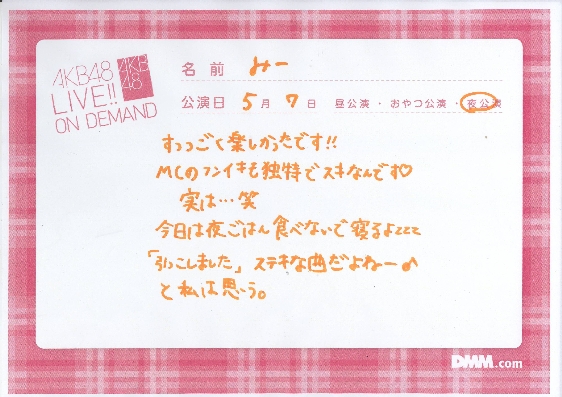 AKB48
LIVE!!
ON DEMAND
AKB
48
名前 みー
公演日 5月7日 昼公演・おやつ公演・夜公演
すっっごく楽しかったです!!
MCのフンイキも独特でスキなんです♡
実は…笑
今日は夜ごはん食べないで寝るよzzz
「引っこしました」ステキな曲だよねー♪
と私は思う。
DMM.com